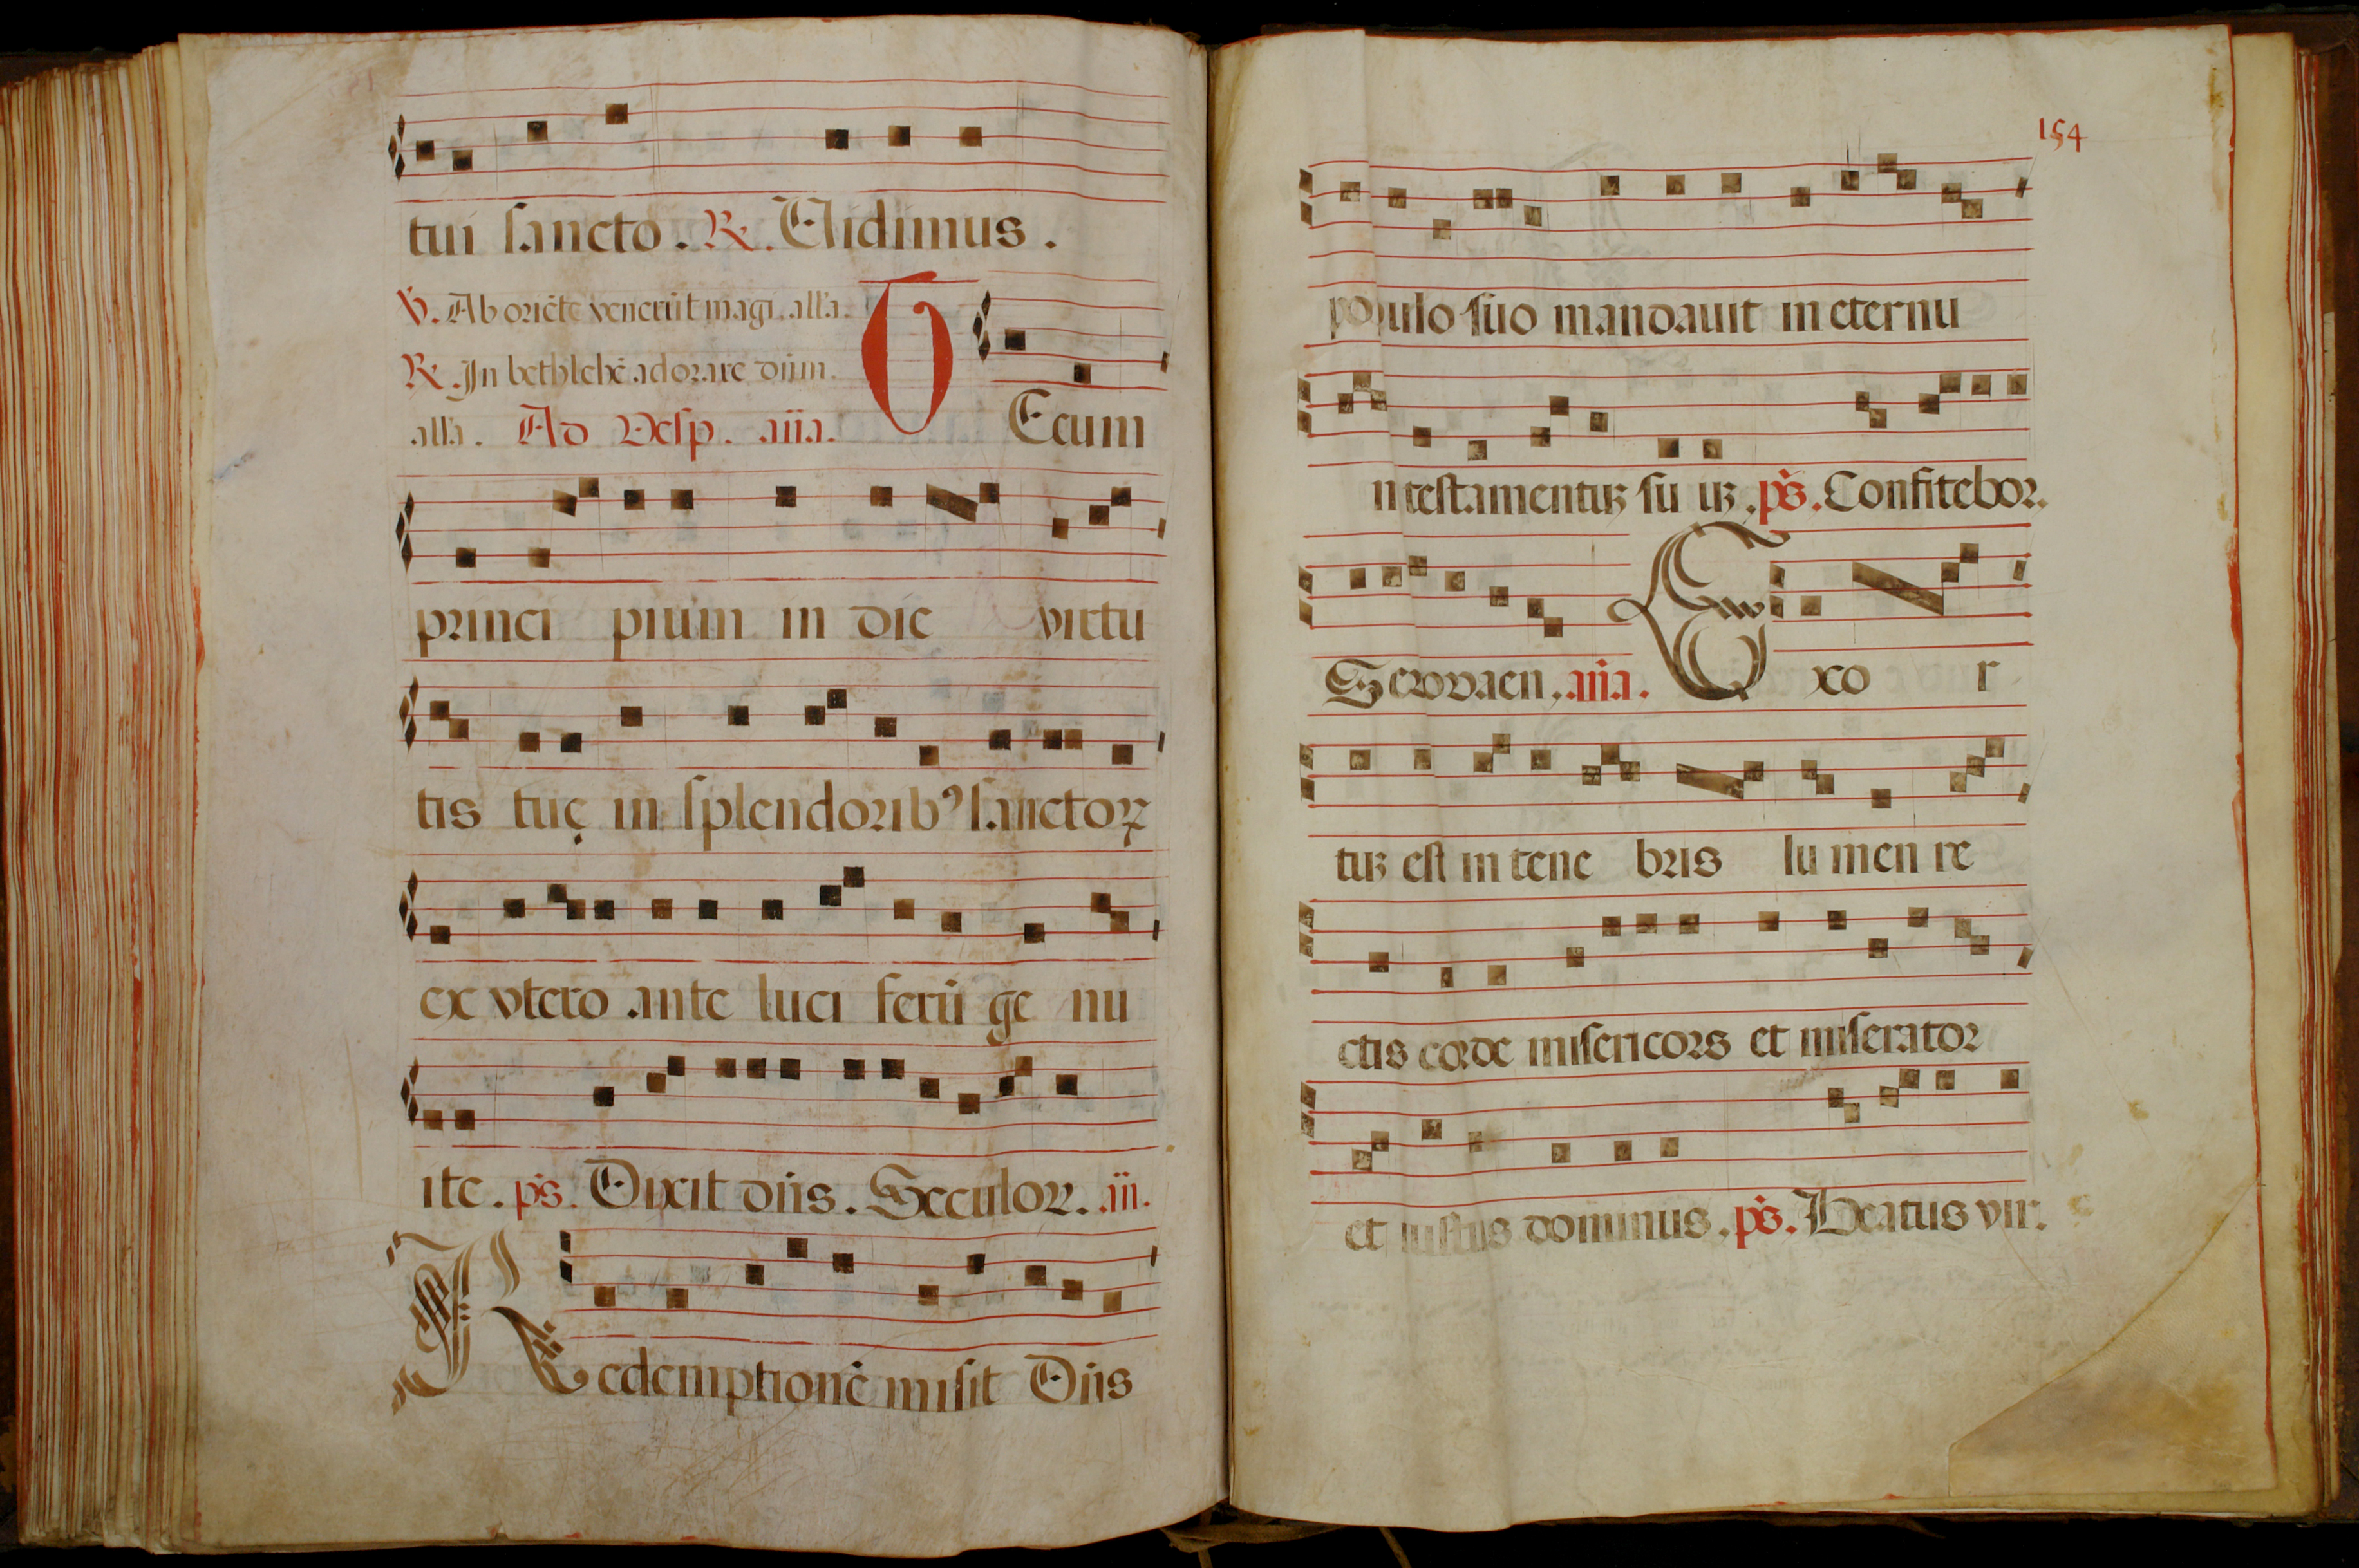 tui sancto. R. Uidimus.
V. Ab oriēte venerūt magi, alla.
R. In bethlehē adorare dūm.
alla. Ad Vesp. ana.
TEcum
princi pium in die virtu
tis tuę in splendorib⁹ sanctoꝝ
ex vtero ante luci ferū ge nu
ite. ps. Dixit dūs. Seculor. an.
Redemptionē misit Dūs
154
populo suo mandauit in eternu
m testamentuꝫ su uꝫ. ps. Confitebor.
Sewvaen. ana. Exo r
tuꝫ est in tene bris lu men re
ctis corde misericors et miserator
et iustus dominus. ps. Beatus vir.